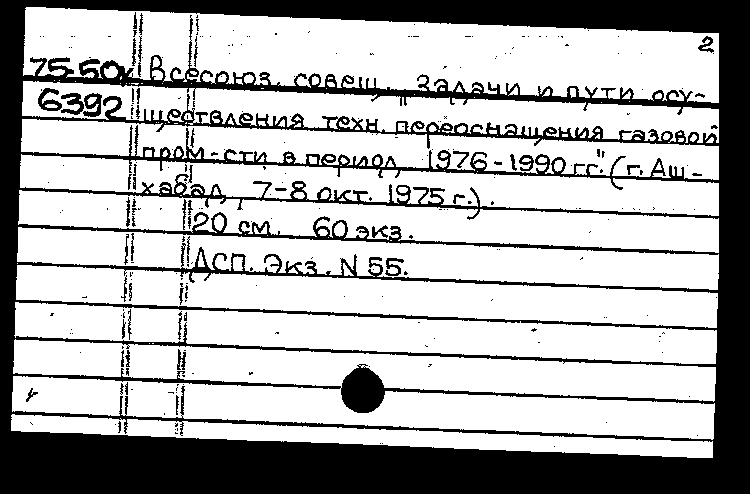 2
75-50к Всесоюз. совещ. "Задачи и пути осу-
6392 ществления техн. переоснащения газовой
пром-сти в период 1976-1990 гг." (г. Аш-
хабад, 7-8 окт. 1975 г.).
20 см. 60 экз.
ДСП. Экз. N 55.